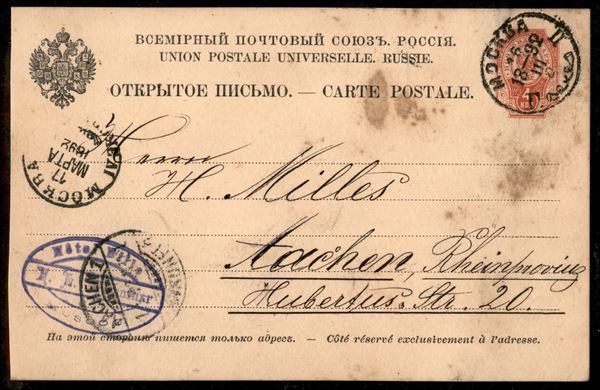 ВСЕМІРНЫЙ ПОЧТОВЫЙ СОЮЗЪ. РОССІЯ.
UNION POSTALE UNIVERSELLE. RUSSIE.
ОТКРЫТОЕ ПИСЬМО. — CARTE POSTALE.
МОСКВА
1892
МОСКВА
17
МАРТА
1892
Herrn
H. Milles
Aachen, Rheinprovinz
Hubertus. Str. 20.
Hôtel
AACHEN
На этой сторонѣ пишется только адресъ. — Côté réservé exclusivement à l'adresse.